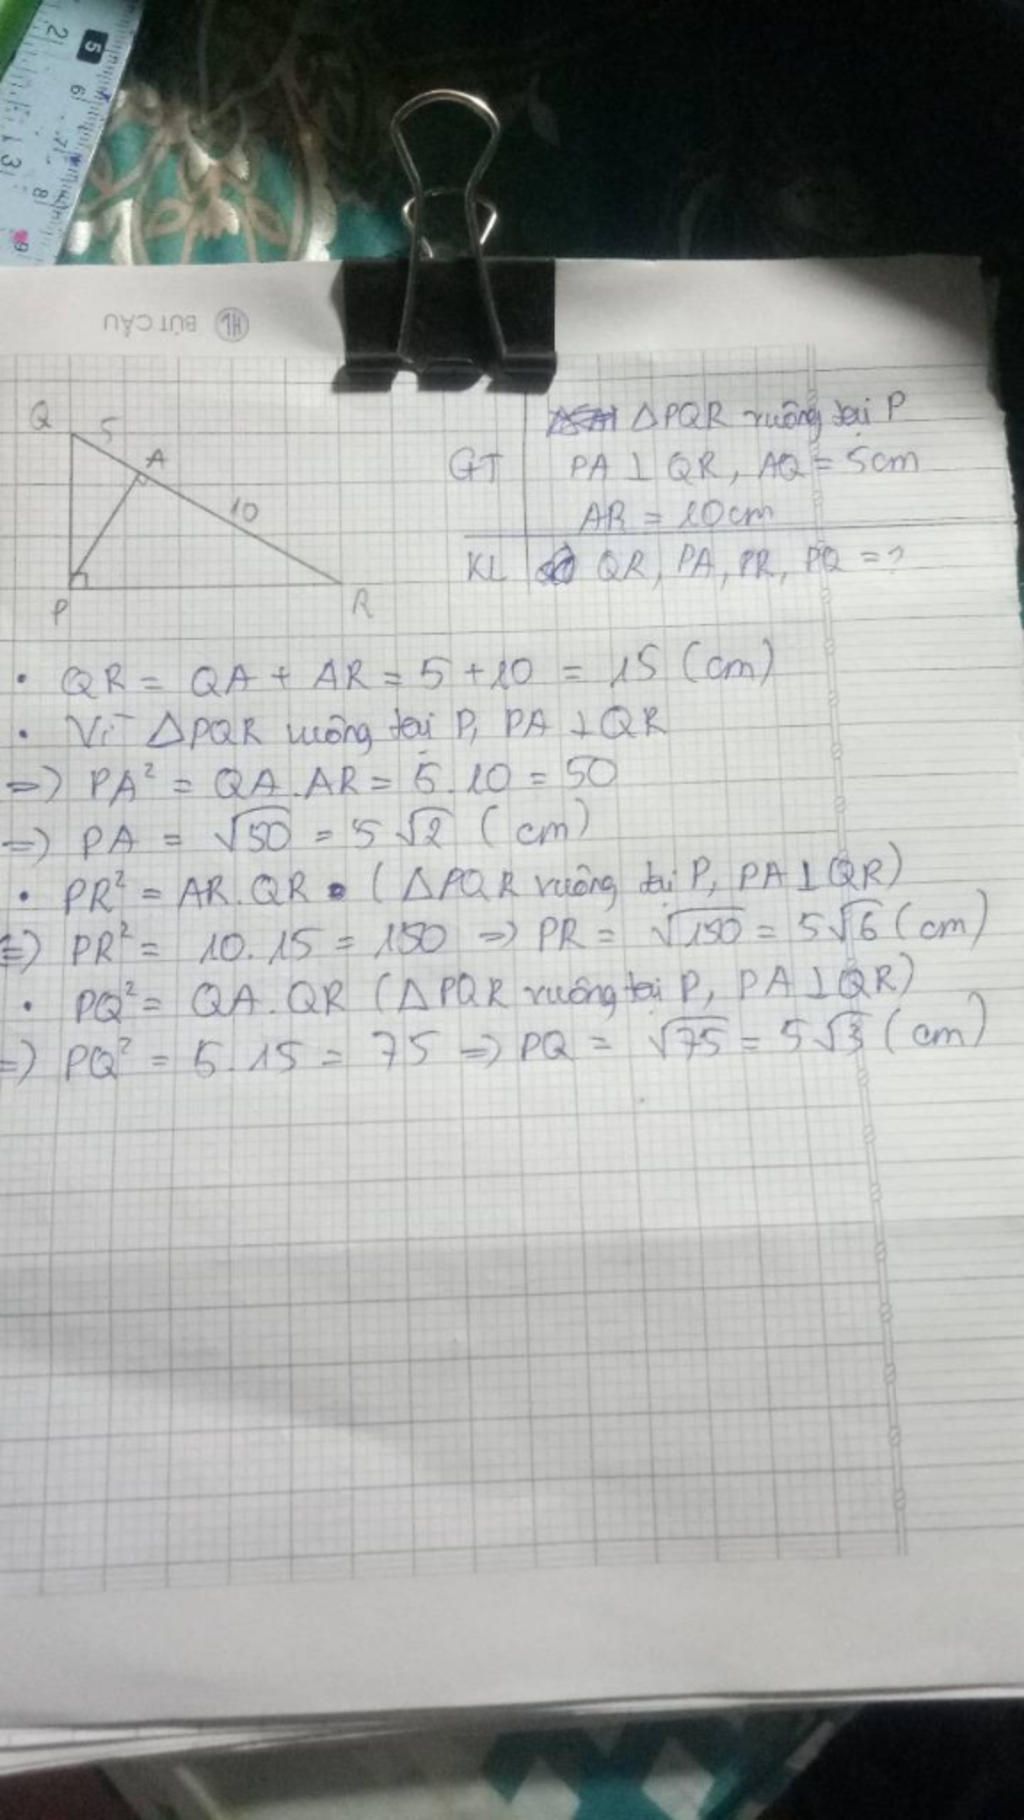 2 5 6 7 8 3 9
HL BÚT CẦU
Q 5 A 10 P R
GT
ΔPQR vuông tại P
PA ⊥ QR, AQ = 5cm
AR = 10cm
KL QR, PA, PR, PQ = ?
• QR = QA + AR = 5 + 10 = 15 (cm)
• Vì ΔPQR vuông tại P, PA ⊥ QR
=) PA² = QA . AR = 5 . 10 = 50
=) PA = √50 = 5√2 (cm)
• PR² = AR . QR (ΔPQR vuông tại P, PA ⊥ QR)
=) PR² = 10 . 15 = 150 =) PR = √150 = 5√6 (cm)
• PQ² = QA . QR (ΔPQR vuông tại P, PA ⊥ QR)
=) PQ² = 5 . 15 = 75 =) PQ = √75 = 5√3 (cm)